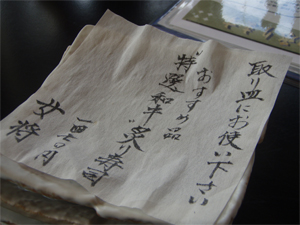 取り皿にお使い下さい
おすすめ品
特選和牛炙り寿司
女将